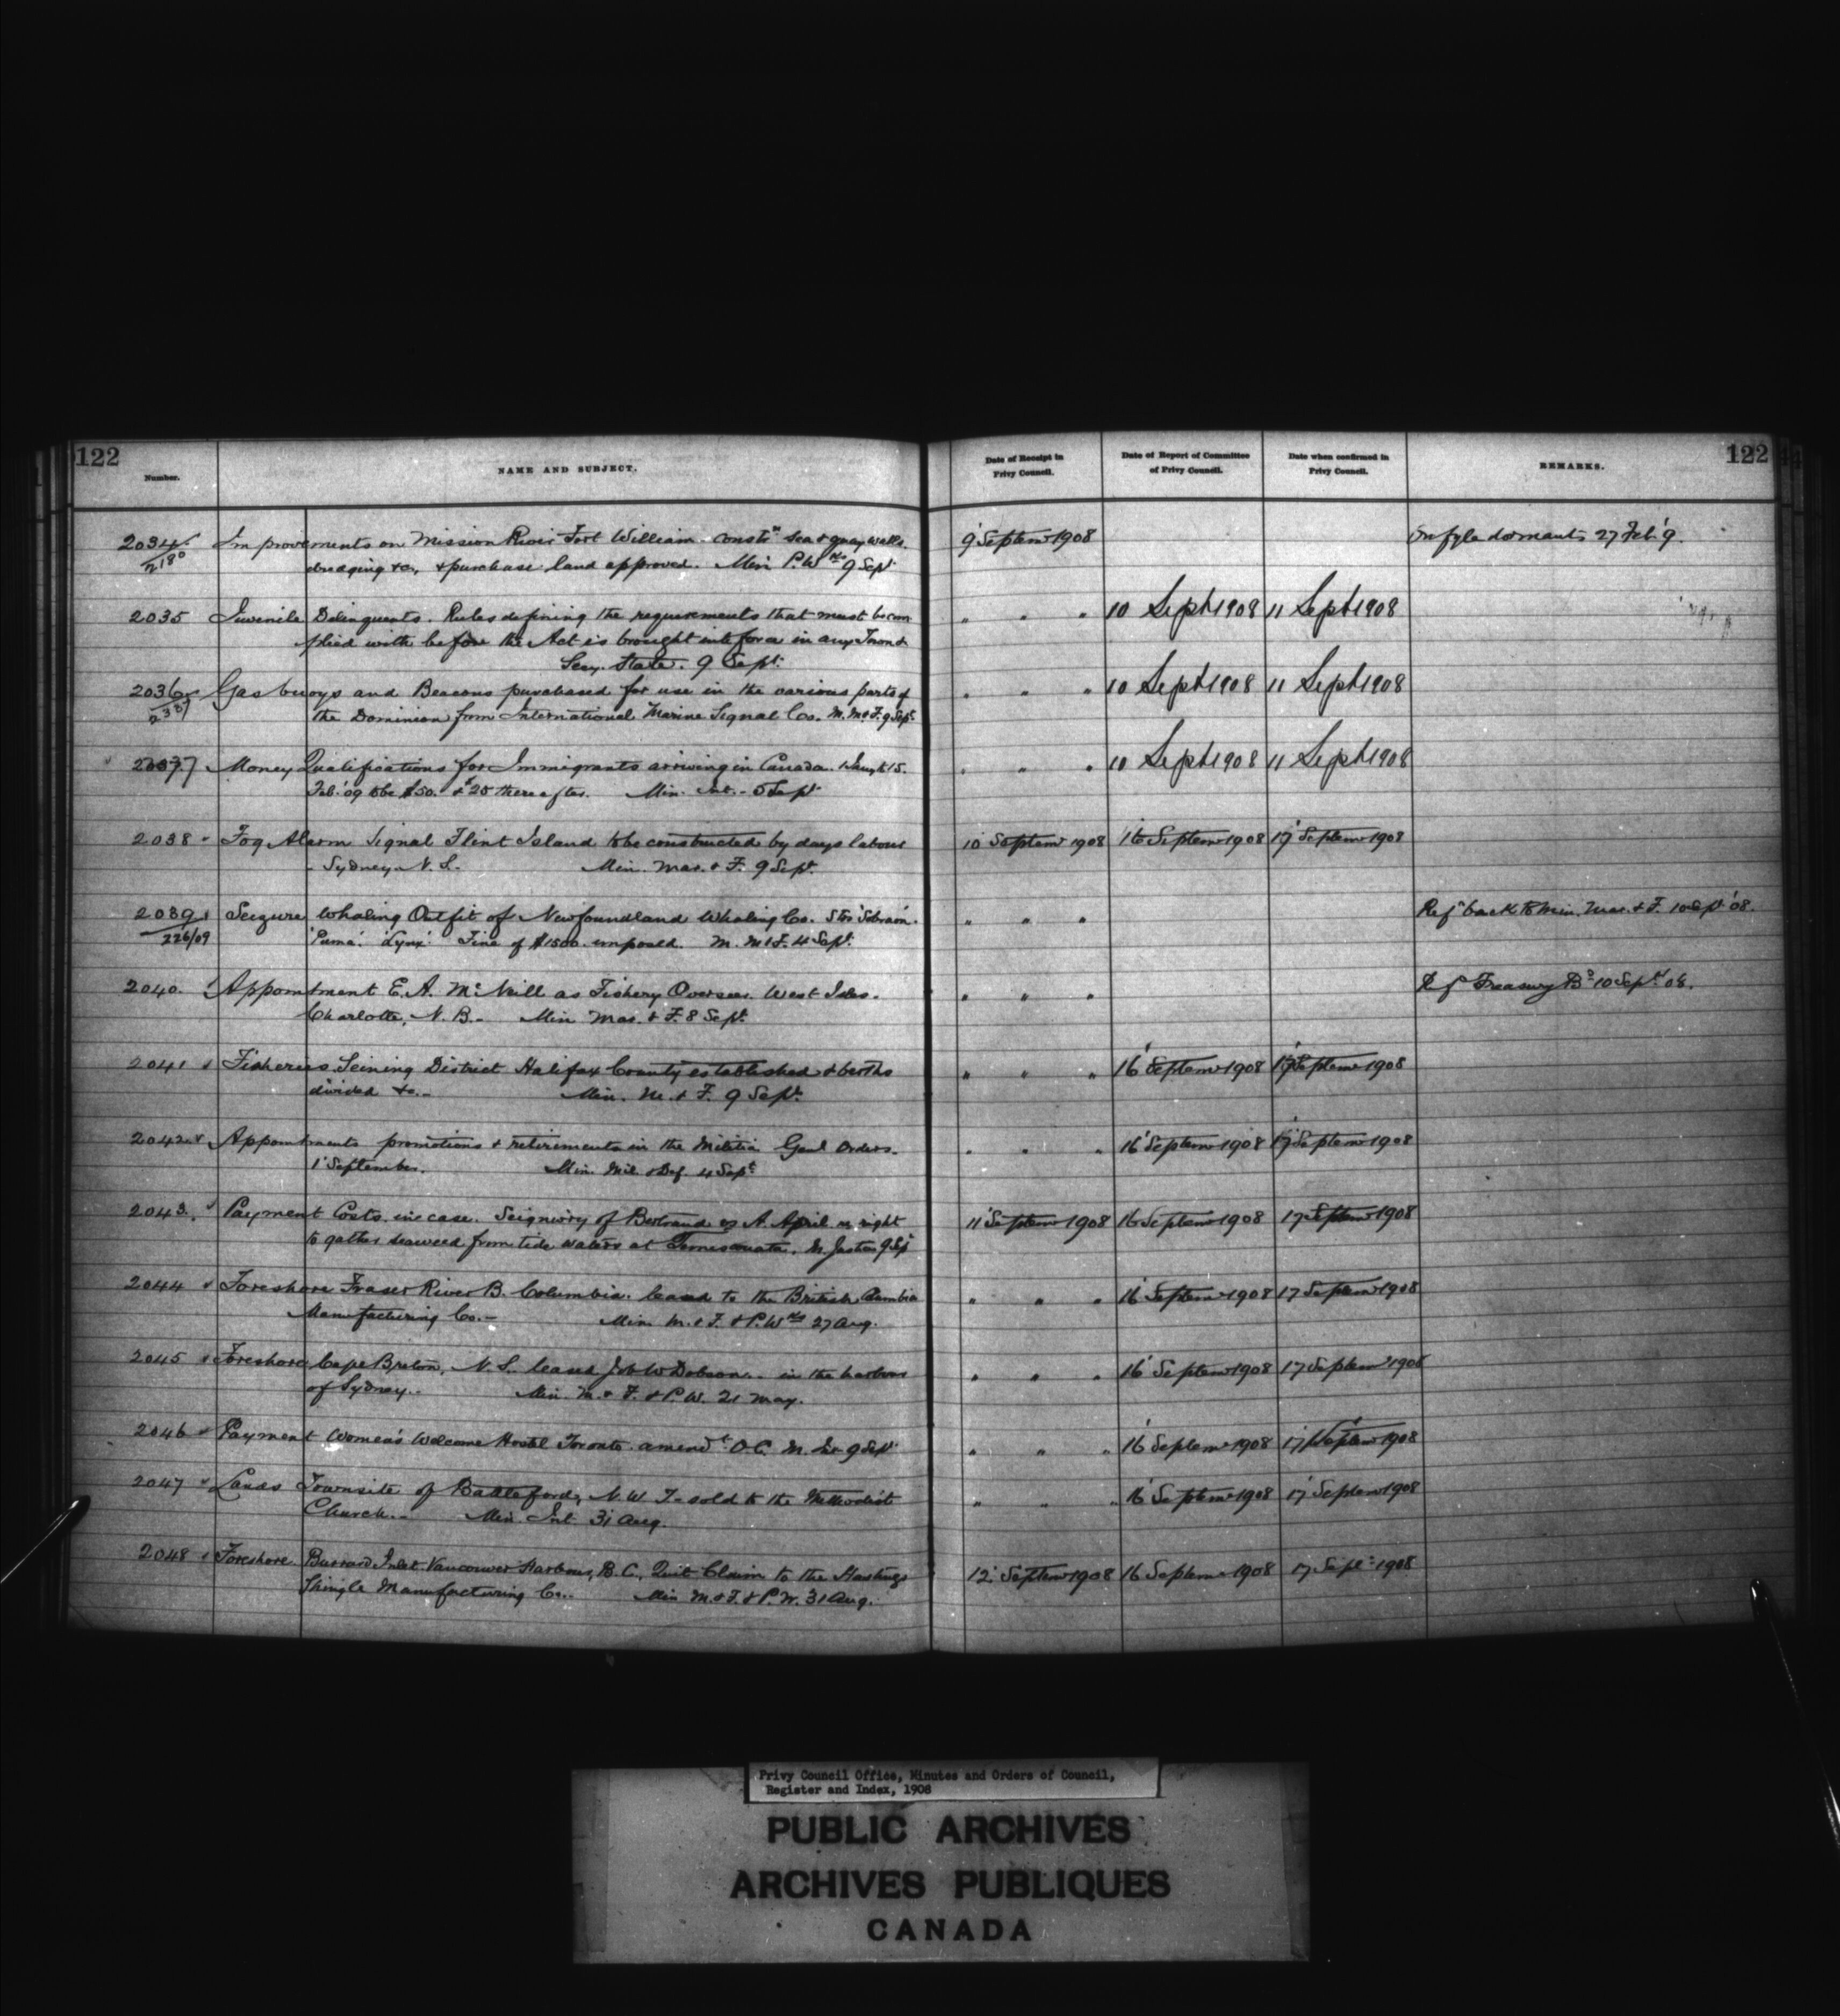 122
Number.
NAME AND SUBJECT.
Date of Receipt in
Privy Council.
Date of Report of Committee
of Privy Council.
Date when confirmed in
Privy Council.
REMARKS.
122
2034 Improvements on Mission River Fort William - constn sea & quay walls. 9' Septemr 1908 On fyle dormants 27 Feb' 9.
2180 dredging &c, & purchase land approved. Min P. Wks 9 Sept
2035 Juvenile Delinquents. Rules defining the requirements that must be com- " " " 10 Sept 1908 11 Sept 1908
plied with before the Act is brought into force in any
Secy. State. 9 Sept.
2036 Gas buoys and Beacons purchased for use in the various parts of " " " 10 Sept 1908 11 Sept 1908
the Dominion from International Marine Signal Co. M. M&F. 9 Sept.
2037 Money Qualifications for Immigrants arriving in Canada. 1 Jany to 15. " " " 10 Sept 1908 11 Sept 1908
Feb. '09 to be $50. & $25 thereafter. Min. Int. - 5 Sept
2038 Fog Alarm Signal Flint Island to be constructed by days labour 10 Septemr 1908 16 Septemr 1908 17 Septemr 1908
- Sydney N. S. Min. Mar. & F. 9 Sept.
2039 Seizure Whaling Outfit of Newfoundland Whaling Co. Str. " " " Refd back to Min. Mar. & F. 10 Sept '08.
226/09 'Puma'. 'Lynx'. Fine of $1500. imposed. M. M&F. 4 Sept.
2040. Appointment E. A. McNeill as Fishery Overseer. West Isles. " " " Ref Treasury Bd 10 Sept. 08.
Charlotte, N. B. - Min Mar. & F. 8 Sept.
2041 Fisheries Seining District Halifax County established & berths " " " 16' Septemr 1908 17' Septemr 1908
divided &c. - Min. M. & F. 9 Sept.
2042 Appointments promotions & retirements in the Militia Genl Orders. " " " 16' Septemr 1908 17' Septemr 1908
1' September. Min. Mil. & Def. 4 Sept
2043. Payment Costs in case. Seigniory of Bertrand vs A. April re right 11' Septemr 1908 16 Septemr 1908 17 Septemr 1908
to gather seaweed from tide waters at M. Justice 9 Sep
2044 Foreshore Fraser River B. Columbia. leased to the British Columbia " " " 16' Septemr 1908 17 Septemr 1908
Manufacturing Co. - Min. M. & F. & P. Wks 27 Aug.
2045 Foreshore Cape Breton, N. S. leased W Dobson.. in the harbour " " " 16' Septemr 1908 17 Septemr 1908
of Sydney.. Min. M. & F. & P. W. 21 May.
2046 Payment Women's Welcome Hostel Toronto. amendt O. C. M. Int 9 Sept " " " 16' Septemr 1908 17 Septemr 1908
2047 Lands Townsite of Battleford, N. W. T. - sold to the Methodist " " " 16 Septemr 1908 17' Septemr 1908
Church.. Min. Int 31 Aug.
2048 Foreshore. Burrard Inlet Vancouver Harbour, B. C., Quit Claim to the Hastings 12' Septemr 1908 16 Septemr 1908 17 Septr 1908
Shingle Manufacturing Co.. Min M. & F. & P. W. 31 Aug.
Privy Council Office, Minutes and Orders of Council,
Register and Index, 1908
PUBLIC ARCHIVES
ARCHIVES PUBLIQUES
CANADA